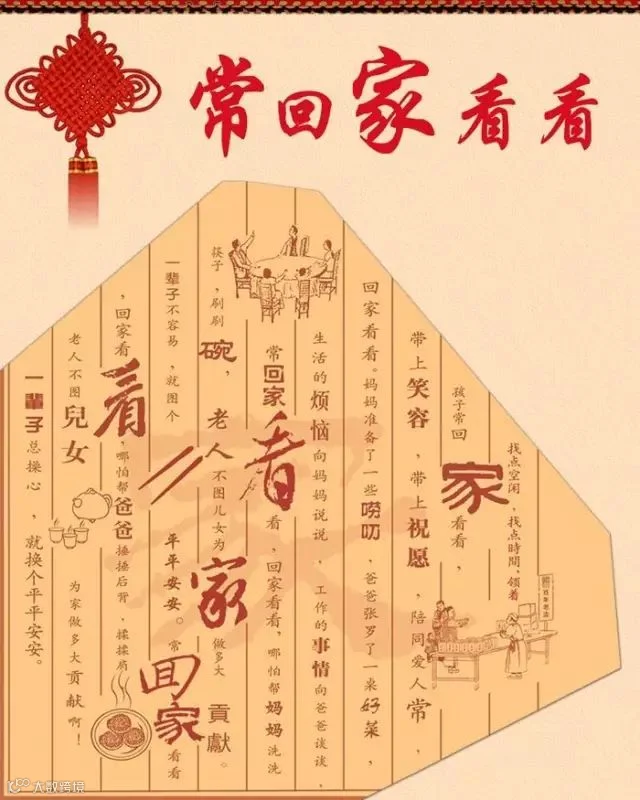 常回家看看
找点空闲，找点時間，领着
孩子常回家看看，
带上笑容，带上祝愿，陪同爱人常，
回家看看。妈妈准备了一些唠叨，爸爸张罗了一桌好菜，
生活的烦恼向妈妈说说，工作的事情向爸爸谈谈，
常回家看看，回家看看，哪怕帮妈妈洗洗
筷子，刷刷碗，老人不图儿女为家做多大貢獻。
一辈子不容易，就图个平平安安。常回家看看
，回家看看，哪怕帮爸爸捶捶后背，揉揉肩
老人不图兒女为家做多大贡献啊！
一輩子总操心，就换个平平安安。
大数跨境